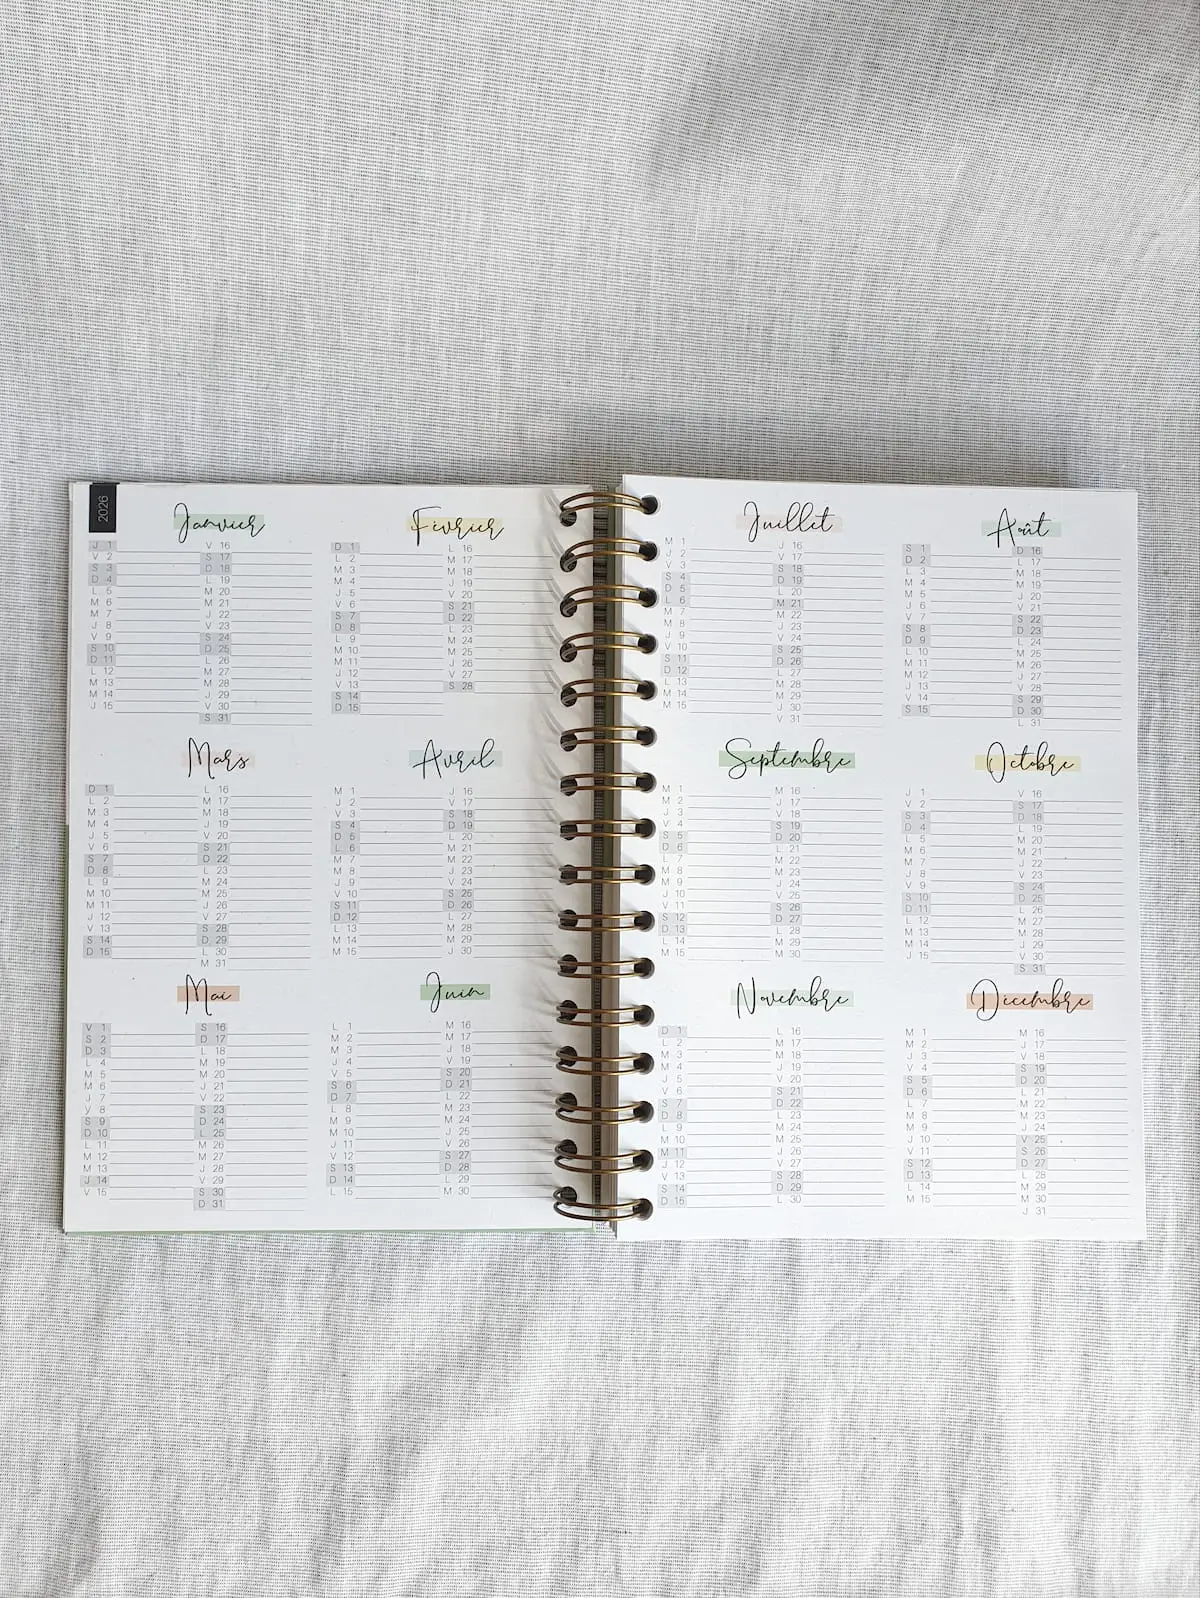 2026
Janvier
J 1
V 2
S 3
D 4
L 5
M 6
M 7
J 8
V 9
S 10
D 11
L 12
M 13
M 14
J 15
V 16
S 17
D 18
L 19
M 20
M 21
J 22
V 23
S 24
D 25
L 26
M 27
M 28
J 29
V 30
S 31
Février
D 1
L 2
M 3
M 4
J 5
V 6
S 7
D 8
L 9
M 10
M 11
J 12
V 13
S 14
D 15
L 16
M 17
M 18
J 19
V 20
S 21
D 22
L 23
M 24
M 25
J 26
V 27
S 28
Mars
D 1
L 2
M 3
M 4
J 5
V 6
S 7
D 8
L 9
M 10
M 11
J 12
V 13
S 14
D 15
L 16
M 17
M 18
J 19
V 20
S 21
D 22
L 23
M 24
M 25
J 26
V 27
S 28
D 29
L 30
M 31
Avril
M 1
J 2
V 3
S 4
D 5
L 6
M 7
M 8
J 9
V 10
S 11
D 12
L 13
M 14
M 15
J 16
V 17
S 18
D 19
L 20
M 21
M 22
J 23
V 24
S 25
D 26
L 27
M 28
M 29
J 30
Mai
V 1
S 2
D 3
L 4
M 5
M 6
J 7
V 8
S 9
D 10
L 11
M 12
M 13
J 14
V 15
S 16
D 17
L 18
M 19
M 20
J 21
V 22
S 23
D 24
L 25
M 26
M 27
J 28
V 29
S 30
D 31
Juin
L 1
M 2
M 3
J 4
V 5
S 6
D 7
L 8
M 9
M 10
J 11
V 12
S 13
D 14
L 15
M 16
M 17
J 18
V 19
S 20
D 21
L 22
M 23
M 24
J 25
V 26
S 27
D 28
L 29
M 30
Juillet
M 1
J 2
V 3
S 4
D 5
L 6
M 7
M 8
J 9
V 10
S 11
D 12
L 13
M 14
M 15
J 16
V 17
S 18
D 19
L 20
M 21
M 22
J 23
V 24
S 25
D 26
L 27
M 28
M 29
J 30
V 31
Août
S 1
D 2
L 3
M 4
M 5
J 6
V 7
S 8
D 9
L 10
M 11
M 12
J 13
V 14
S 15
D 16
L 17
M 18
M 19
J 20
V 21
S 22
D 23
L 24
M 25
M 26
J 27
V 28
S 29
D 30
L 31
Septembre
M 1
M 2
J 3
V 4
S 5
D 6
L 7
M 8
M 9
J 10
V 11
S 12
D 13
L 14
M 15
M 16
J 17
V 18
S 19
D 20
L 21
M 22
M 23
J 24
V 25
S 26
D 27
L 28
M 29
M 30
Octobre
J 1
V 2
S 3
D 4
L 5
M 6
M 7
J 8
V 9
S 10
D 11
L 12
M 13
M 14
J 15
V 16
S 17
D 18
L 19
M 20
M 21
J 22
V 23
S 24
D 25
L 26
M 27
M 28
J 29
V 30
S 31
Novembre
D 1
L 2
M 3
M 4
J 5
V 6
S 7
D 8
L 9
M 10
M 11
J 12
V 13
S 14
D 15
L 16
M 17
M 18
J 19
V 20
S 21
D 22
L 23
M 24
M 25
J 26
V 27
S 28
D 29
L 30
Décembre
M 1
M 2
J 3
V 4
S 5
D 6
L 7
M 8
M 9
J 10
V 11
S 12
D 13
L 14
M 15
M 16
J 17
V 18
S 19
D 20
L 21
M 22
M 23
J 24
V 25
S 26
D 27
L 28
M 29
M 30
J 31